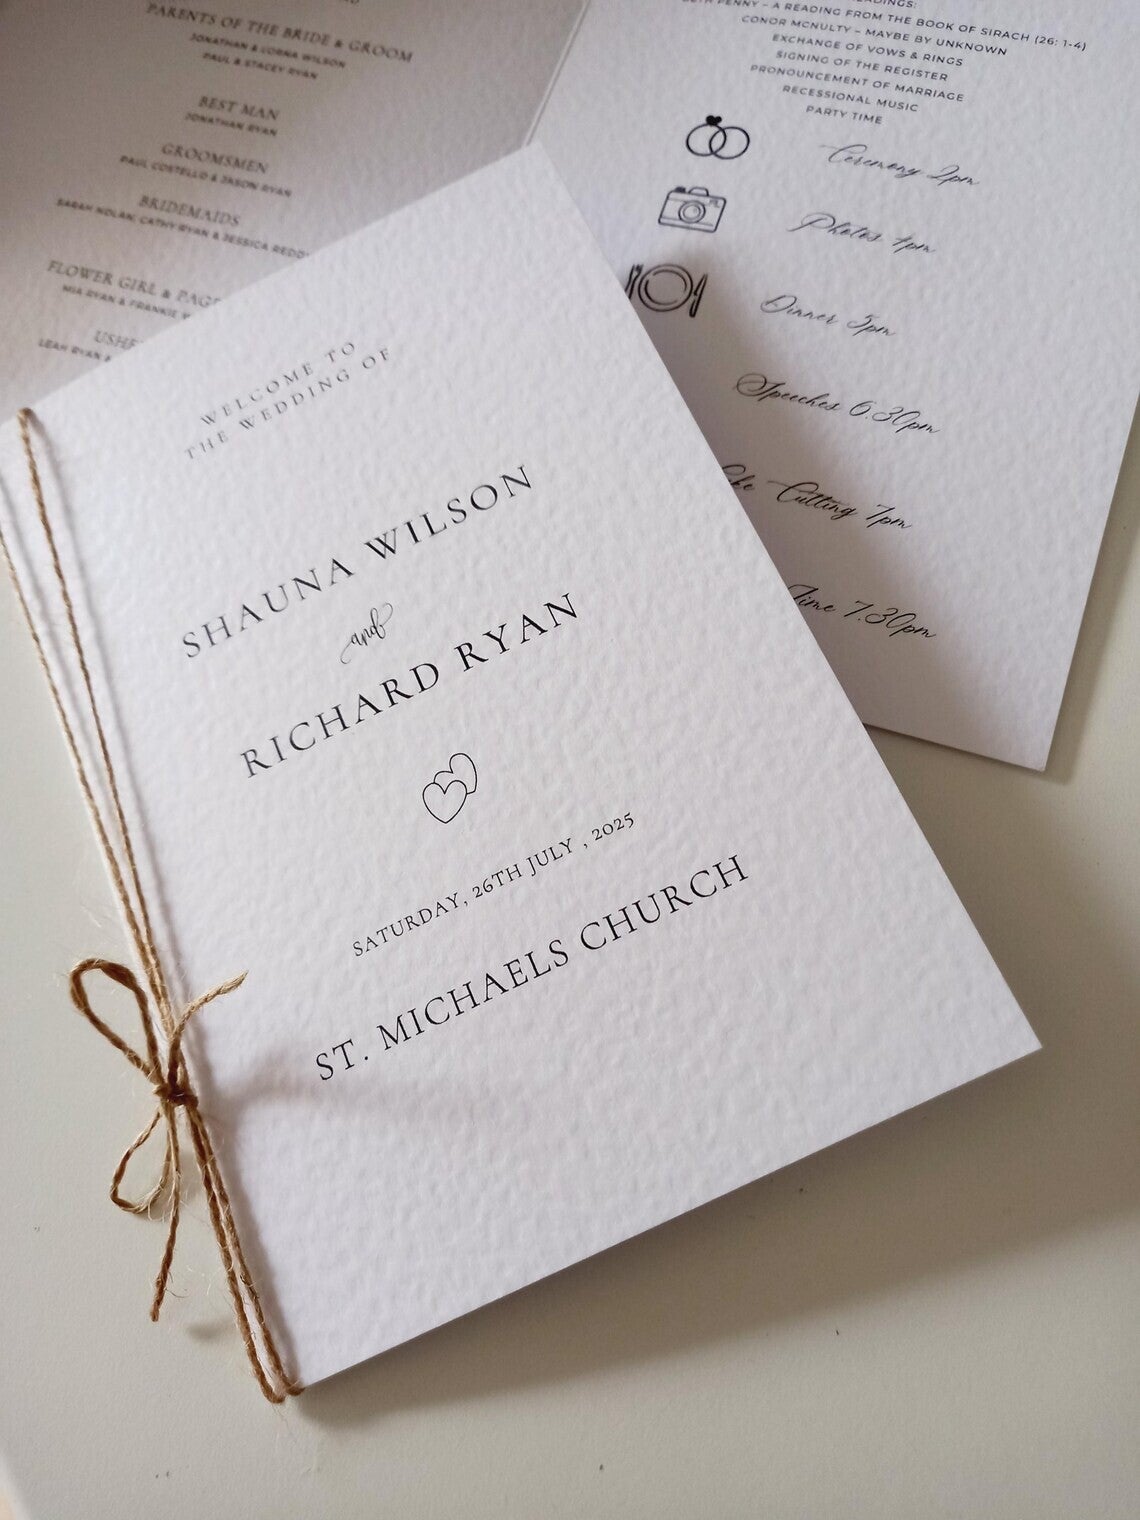 PARENTS OF THE BRIDE & GROOM
JONATHAN & LORNA WILSON
PAUL & STACEY RYAN
BEST MAN
JONATHAN RYAN
GROOMSMEN
PAUL COSTELLO & JASON RYAN
BRIDEMAIDS
SARAH NOLAN, CATHY RYAN & JESSICA
FLOWER GIRL &
MIA RYAN & FRANKIE
LEAH RYAN &
PENNY – A READING FROM THE BOOK OF SIRACH (26: 1-4)
CONOR MCNULTY – MAYBE BY UNKNOWN
EXCHANGE OF VOWS & RINGS
SIGNING OF THE REGISTER
PRONOUNCEMENT OF MARRIAGE
RECESSIONAL MUSIC
PARTY TIME
Ceremony 2pm
Photos 4pm
Dinner 5pm
Speeches 6.30pm
Cutting 7pm
Time 7.30pm
WELCOME TO
THE WEDDING OF
SHAUNA WILSON
and
RICHARD RYAN
SATURDAY, 26TH JULY , 2025
ST. MICHAELS CHURCH